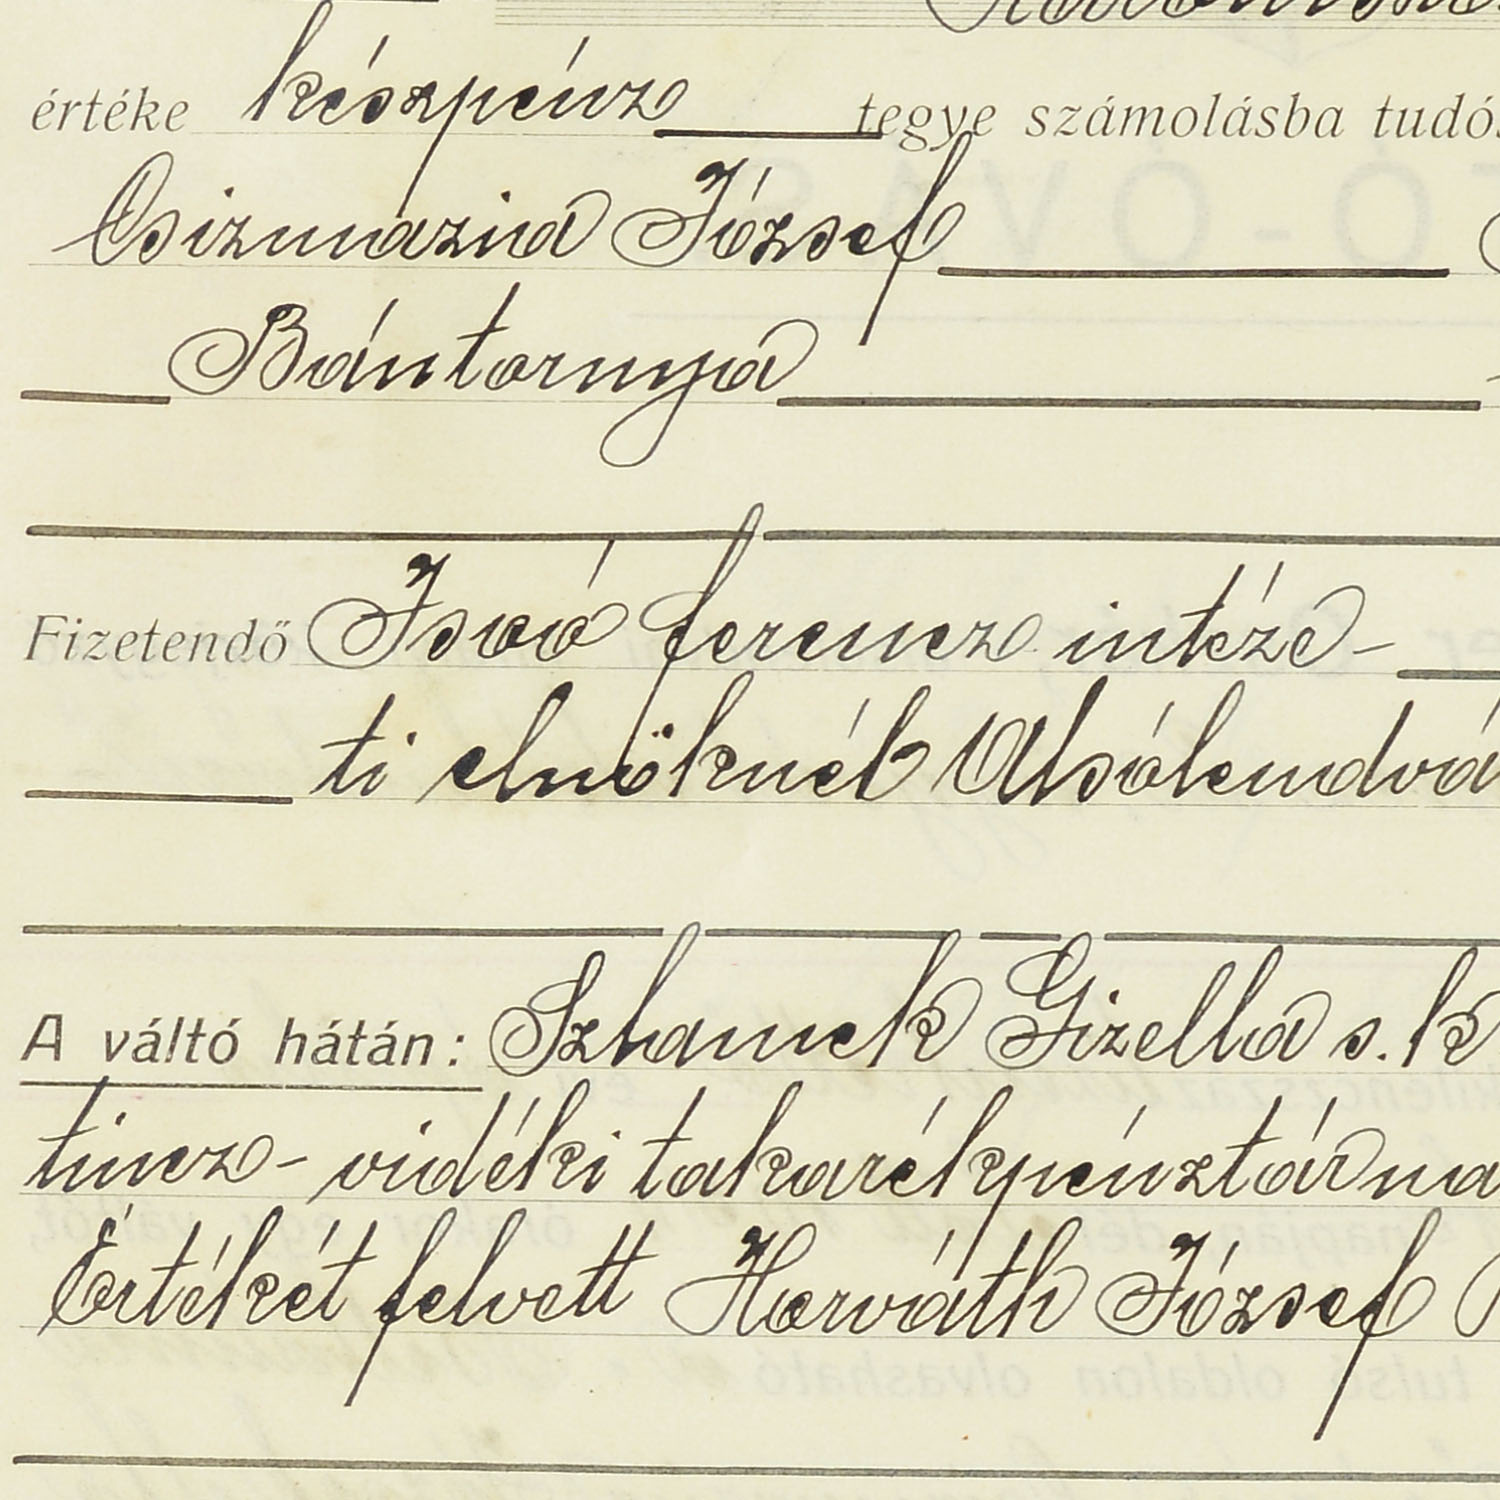 értéke készpénz tegye számolásba tudós
Csizmazia József
Bántornya
Fizetendő Isoó ferencz intéze-
ti elnöknél Alsólendvá
A váltó hátán: Szhanek Gizella s. k
tincz-vidéki takarékpénztárna
Értékét felvett Horváth József